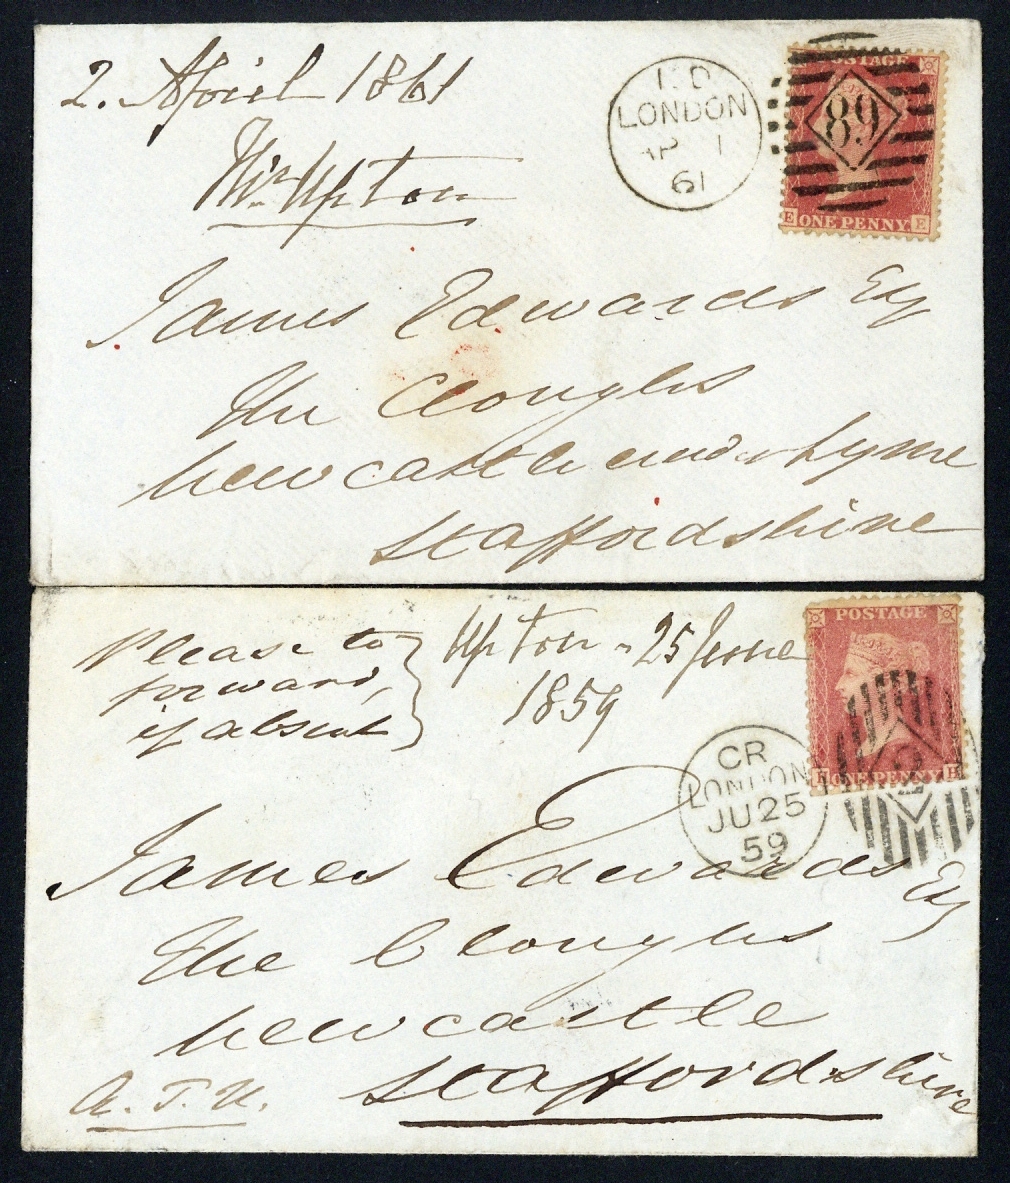 2. April 1861
Mr. Upton
LONDON
AP 1
61
POSTAGE
89
E ONE PENNY E
James Edwards Esq
The Cloughs
Newcastle under Lyme
Staffordshire
Please to
forward,
if absent
Upton - 25 June
1859
CR
LONDON
JU 25
59
POSTAGE
H ONE PENNY H
James Edwards Esq
The Cloughs
Newcastle
Staffordshire
A. T. U.